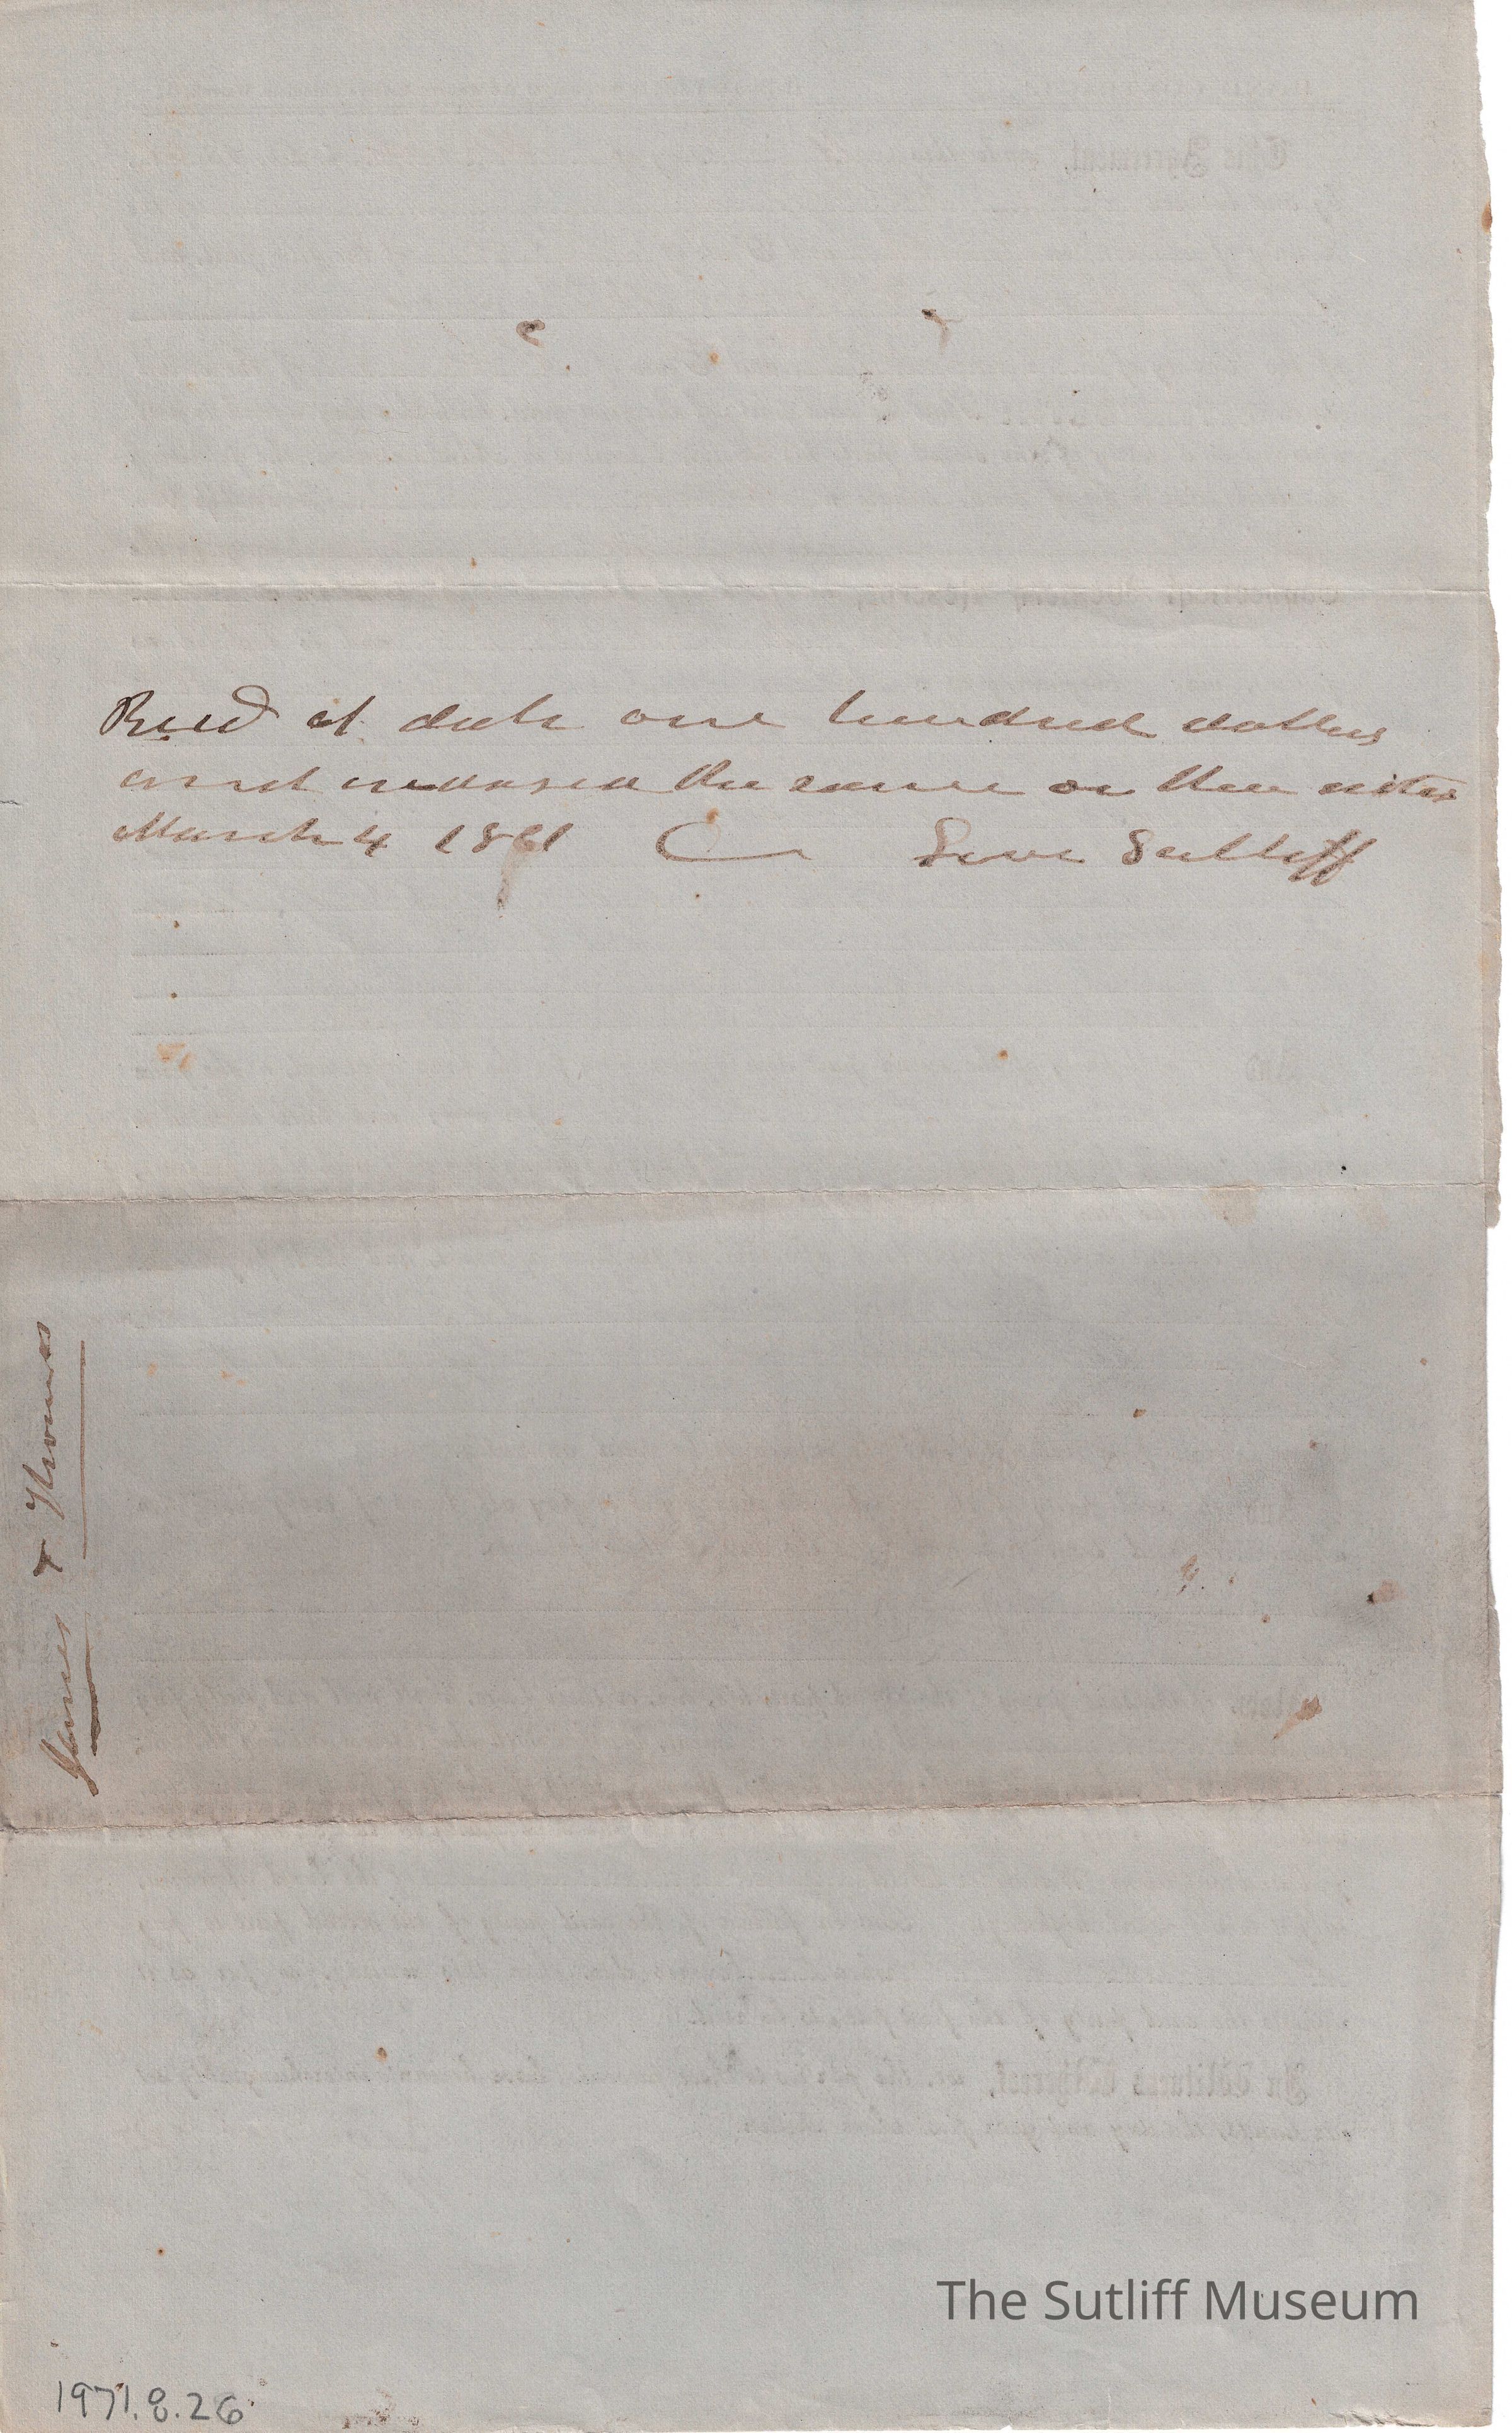 Recd at date one hundred dollars
and indorsed the same on the notes
March 4 1861 Levi Sutliff
James & Thomas
The Sutliff Museum
1971.8.26